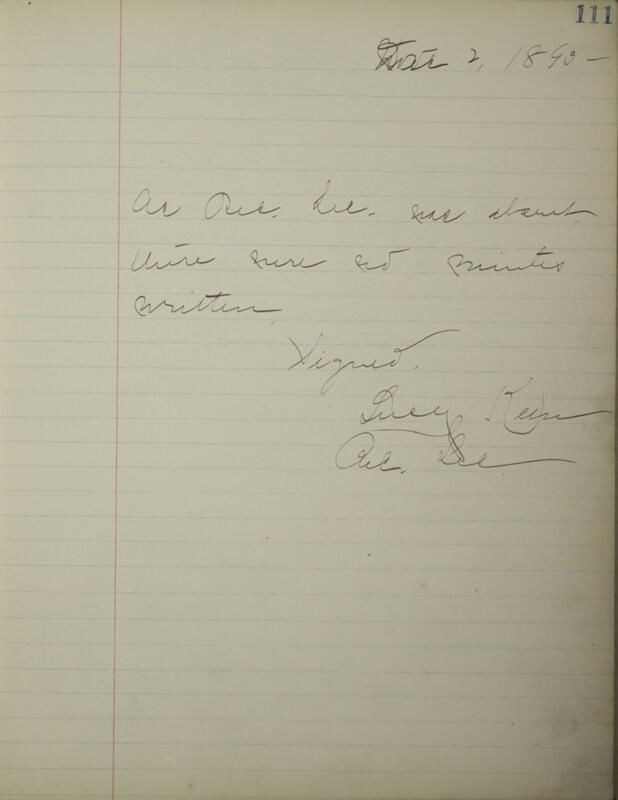 111
2, 1890 —
As Rec. Sec. was absent
there were no minutes
written.
Signed.
Lucy
Rec. Sec.